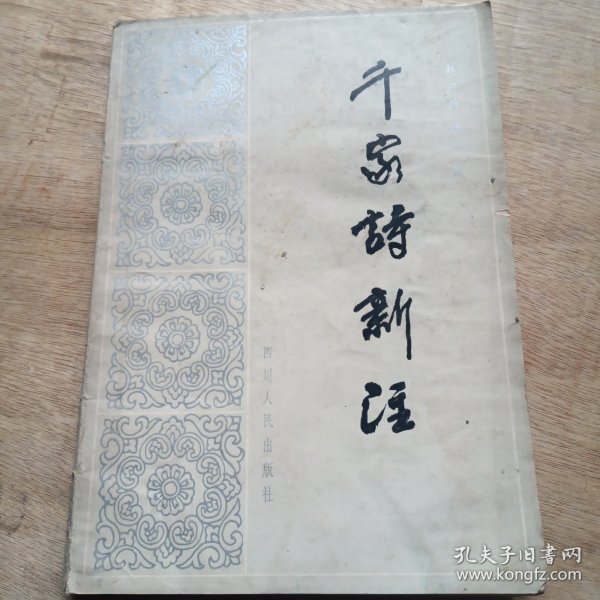 千家詩新注
四川人民出版社
孔夫子旧书网
www.kongfz.com